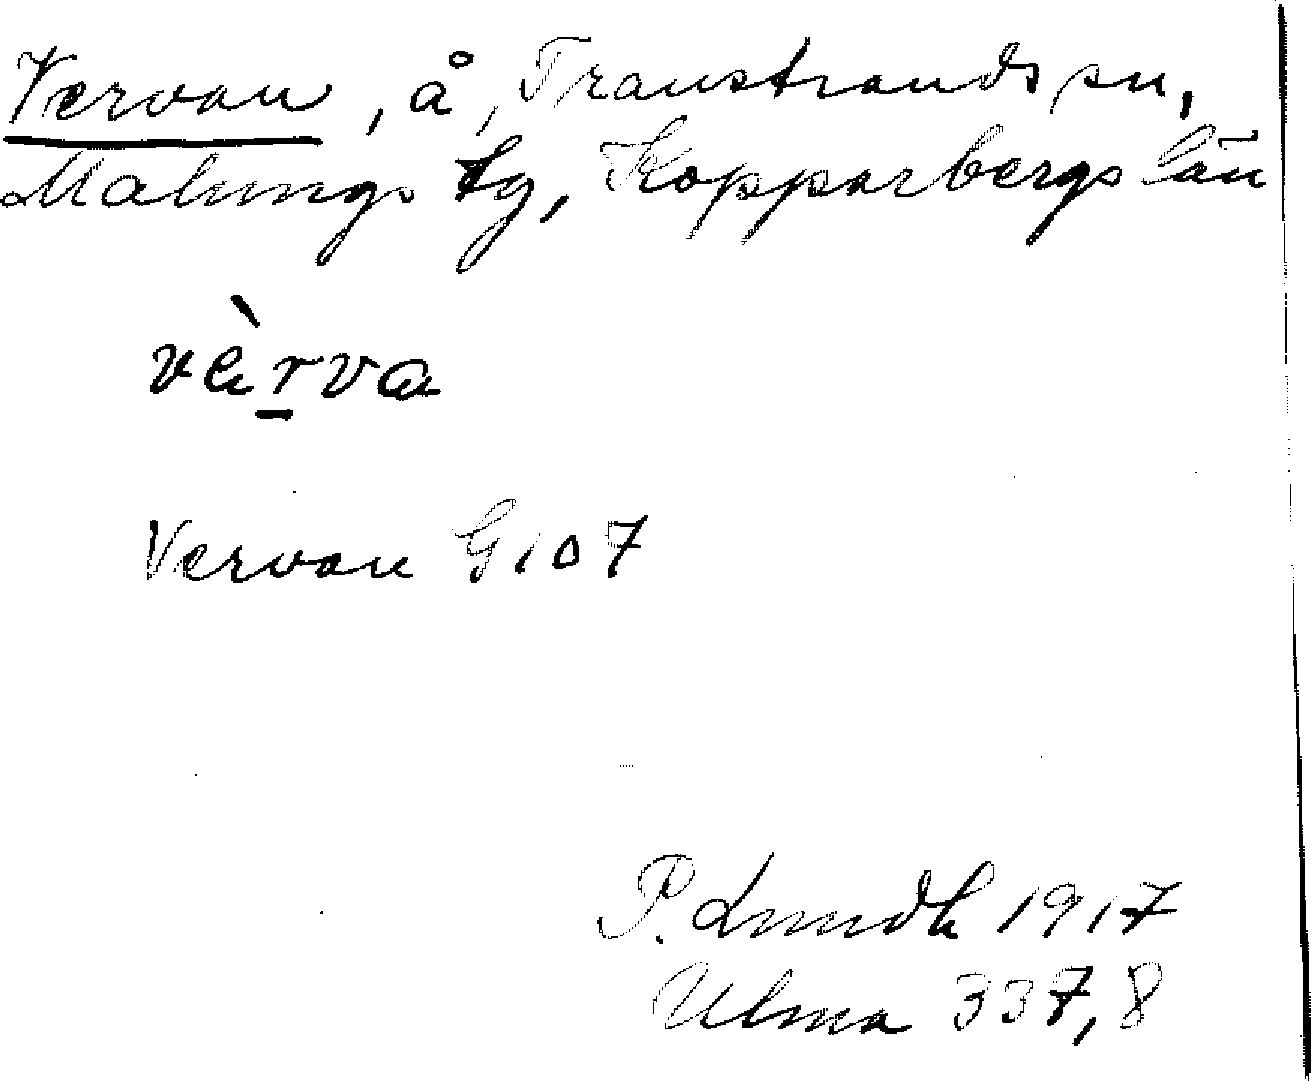 Vervan, å, Transtrands sn,
Malungs tg, Kopparbergs län
vèrva
Vervan G 107
P. Lundh 1917
Ulma 337,8